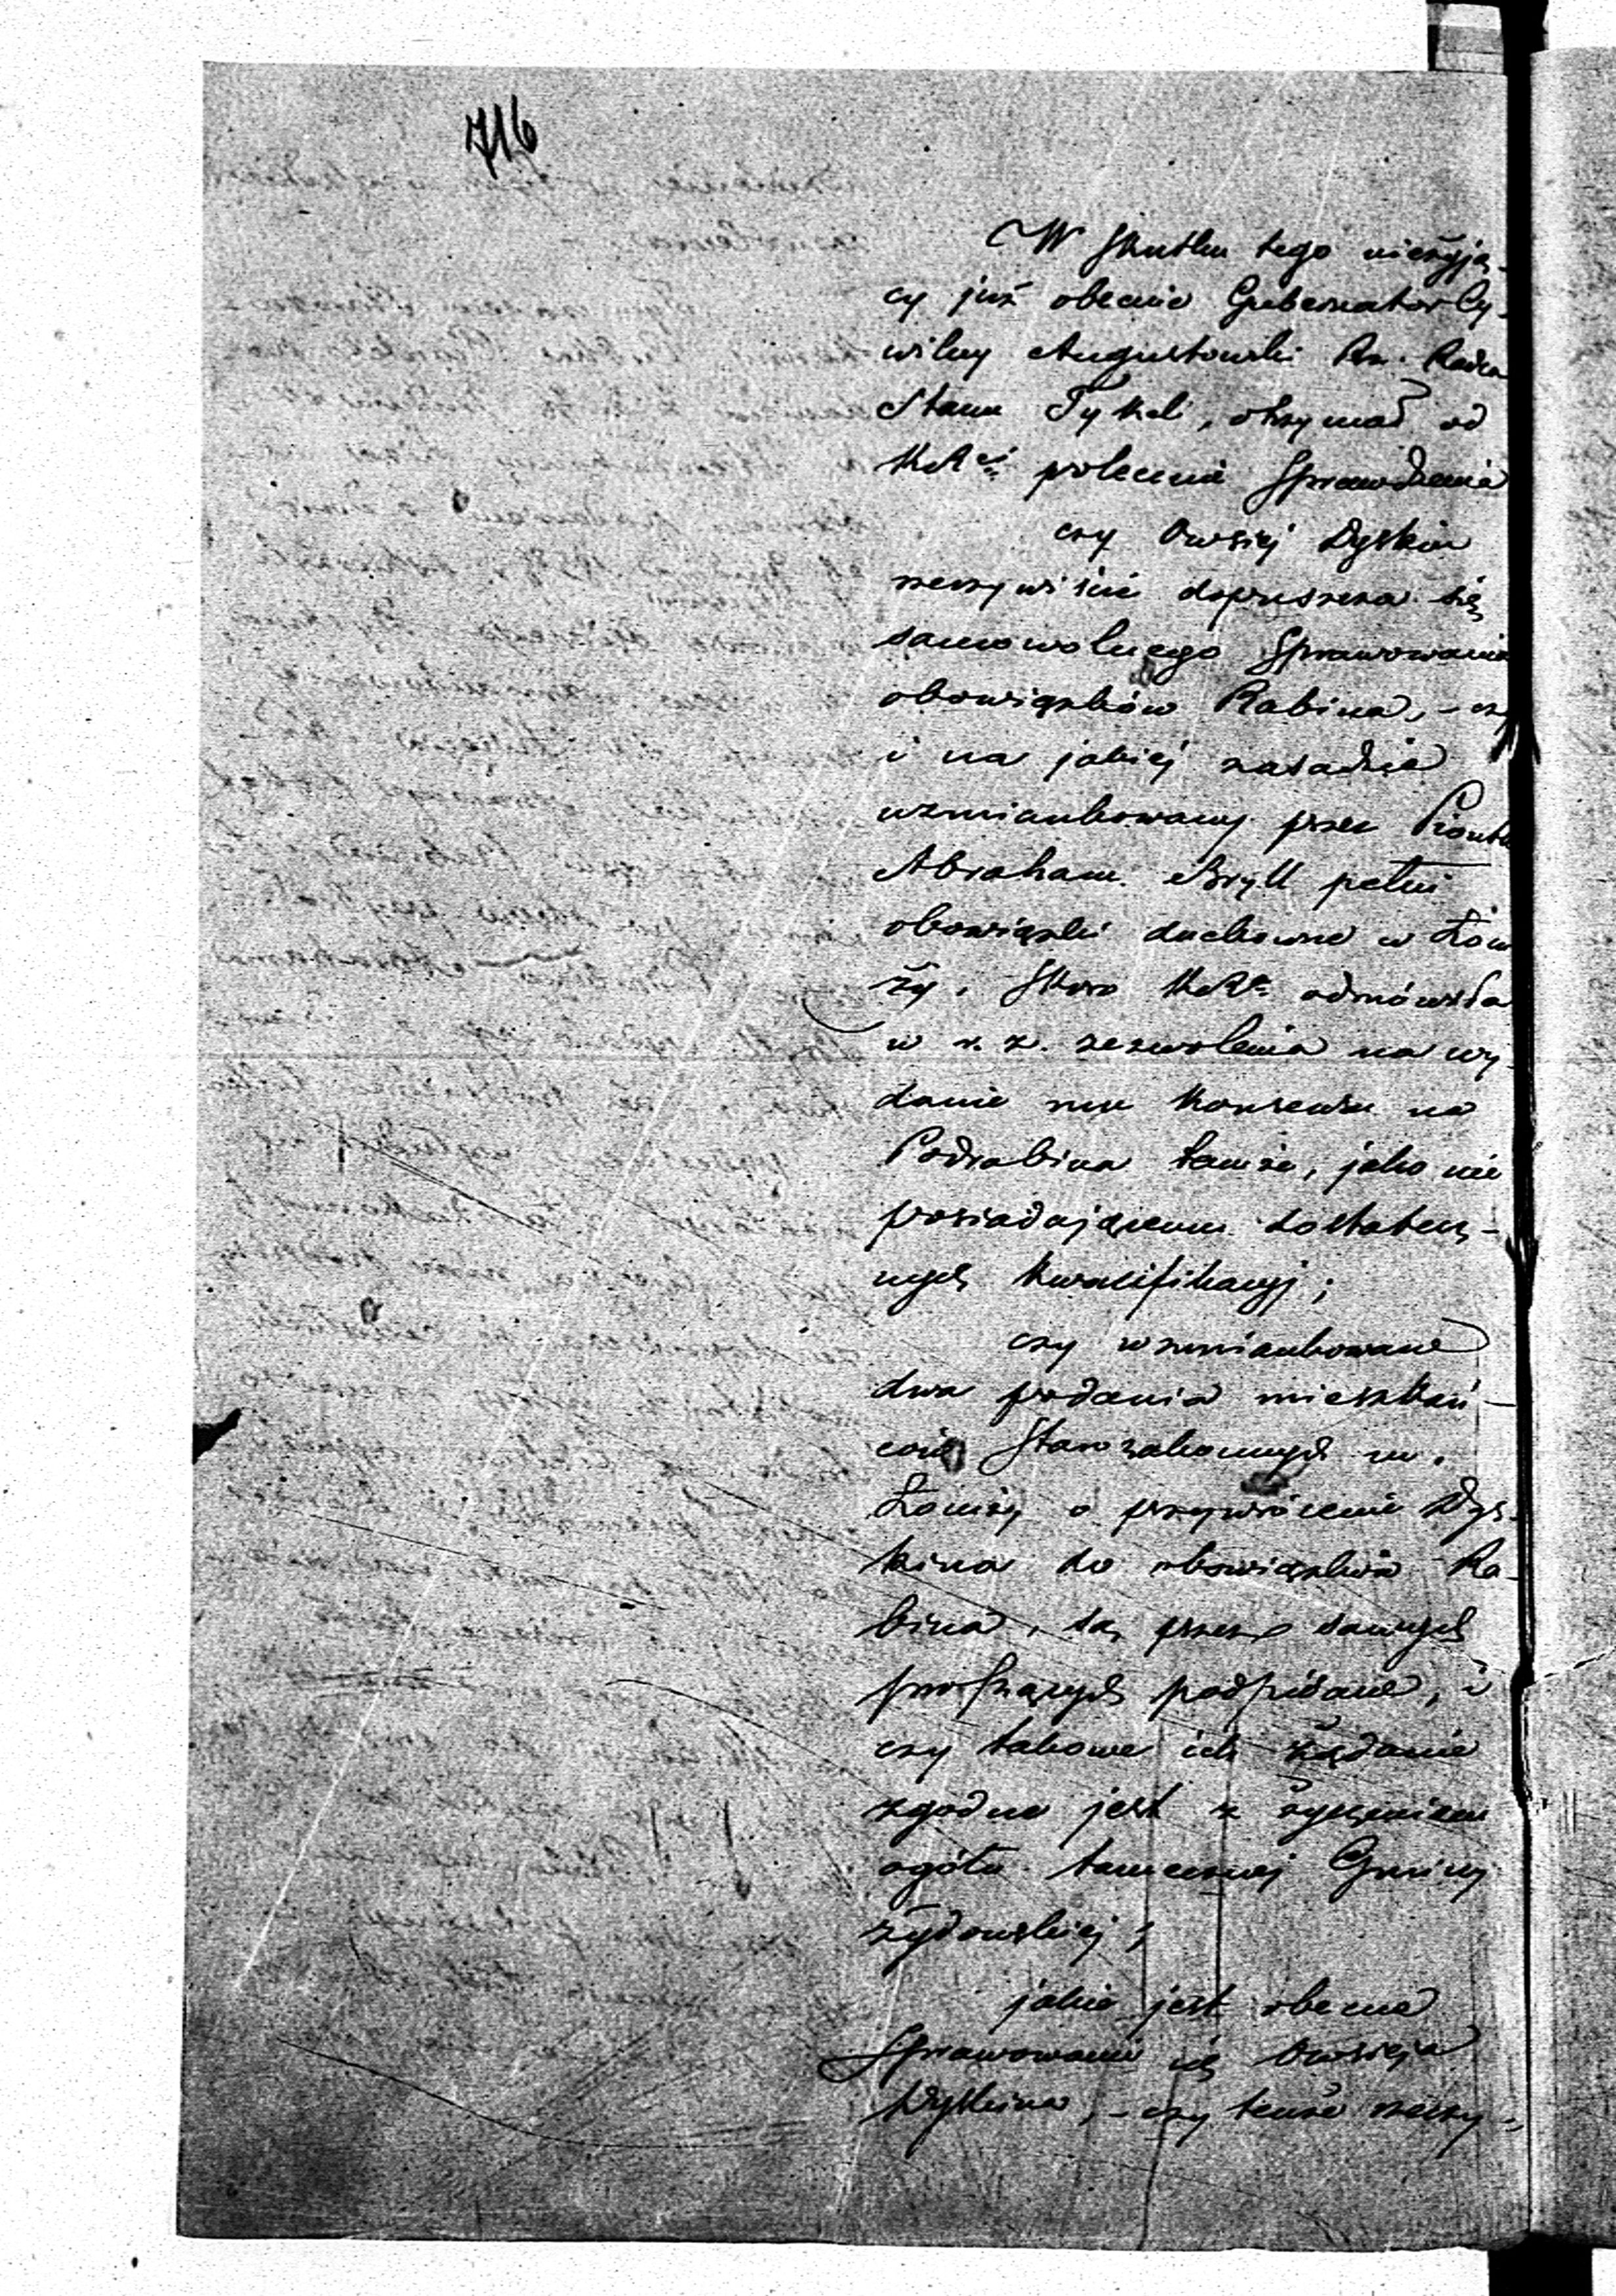 716
W skutku tego nieżyją-
cy już obecnie Gubernator Cy-
wilny Augustowski Rz. Radca
Stanu Tykel, otrzymał od
polecenie sprawdzenia
czy Owsiej Dyskin
rzeczywiście dopuszcza się
samowolnego sprawowania
obowiązków Rabina, - czy
i na jakiej zasadzie
wzmiankowany przez Piontk
Abraham Bryll pełni
obowiązki duchowne w Łom
ży, skoro odmówiła
w r. z. zezwolenia na wy
danie mu konsensu na
Podrabina tamże, jako nie
posiadającemu dostatecz-
nych kwalifikacyj;
czy wzmiankowane
dwa podania mieszkań-
ców Starozakonnych m.
Łomży o przywrócenie Dys-
kina do obowiązków Ra-
bina, są przez samych
proszących podpisane, i
czy takowe ich żądanie
zgodne jest z życzeniem
ogółu tamecznej Gminy
żydowskiej;
jakie jest obecne
Sprawowanie się Owsieja
Dyskina, - czy tenże rzeczy-